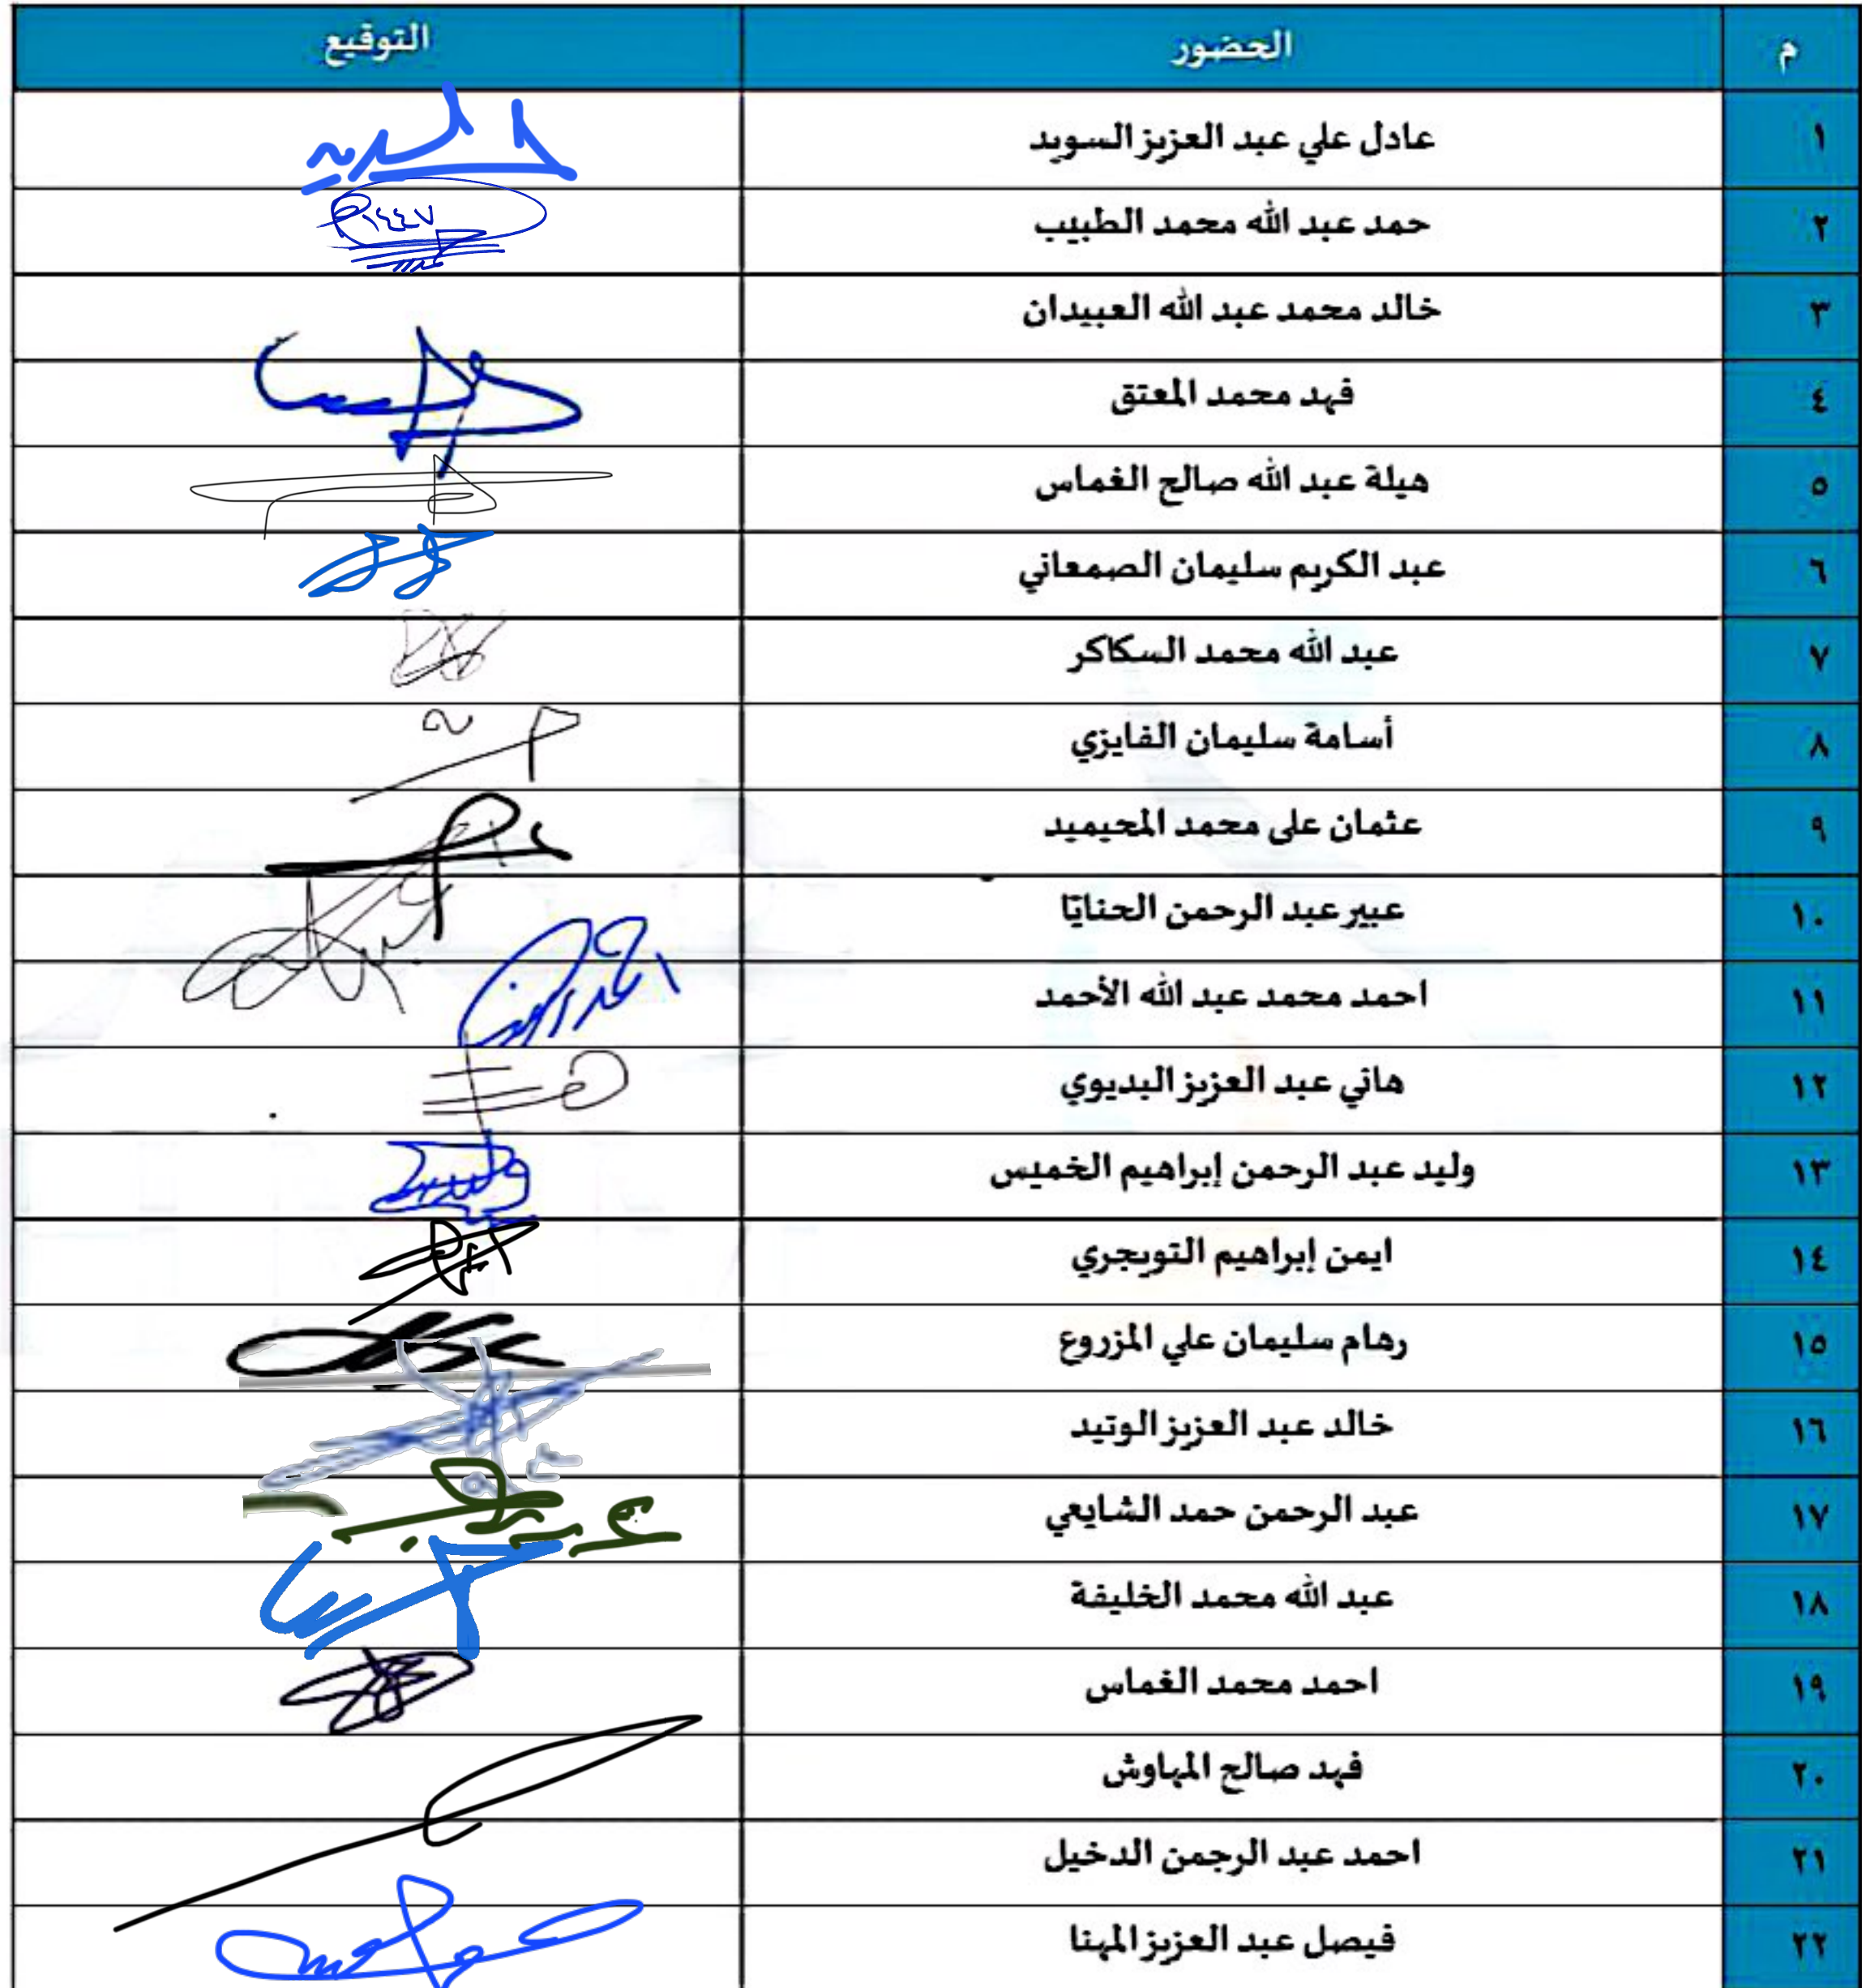 م الحضور التوقيع
١ عادل علي عبد العزيز السويد
٢ حمد عبد الله محمد الطبيب ١٤٤٧
٣ خالد محمد عبد الله العبيدان
٤ فهد محمد المعتق
٥ هيلة عبد الله صالح الغماس
٦ عبد الكريم سليمان الصمعاني
٧ عبد الله محمد السكاكر
٨ أسامة سليمان الفايزي
٩ عثمان على محمد المحيميد
١٠ عبير عبد الرحمن الحنايًا
١١ احمد محمد عبد الله الأحمد
١٢ هاني عبد العزيز البديوي
١٣ وليد عبد الرحمن إبراهيم الخميس
١٤ ايمن إبراهيم التويجري
١٥ رهام سليمان علي المزروع
١٦ خالد عبد العزيز الوتيد
١٧ عبد الرحمن حمد الشايعي
١٨ عبد الله محمد الخليفة
١٩ احمد محمد الغماس
٢٠ فهد صالح المهاوش
٢١ احمد عبد الرجمن الدخيل
٢٢ فيصل عبد العزيز المهنا